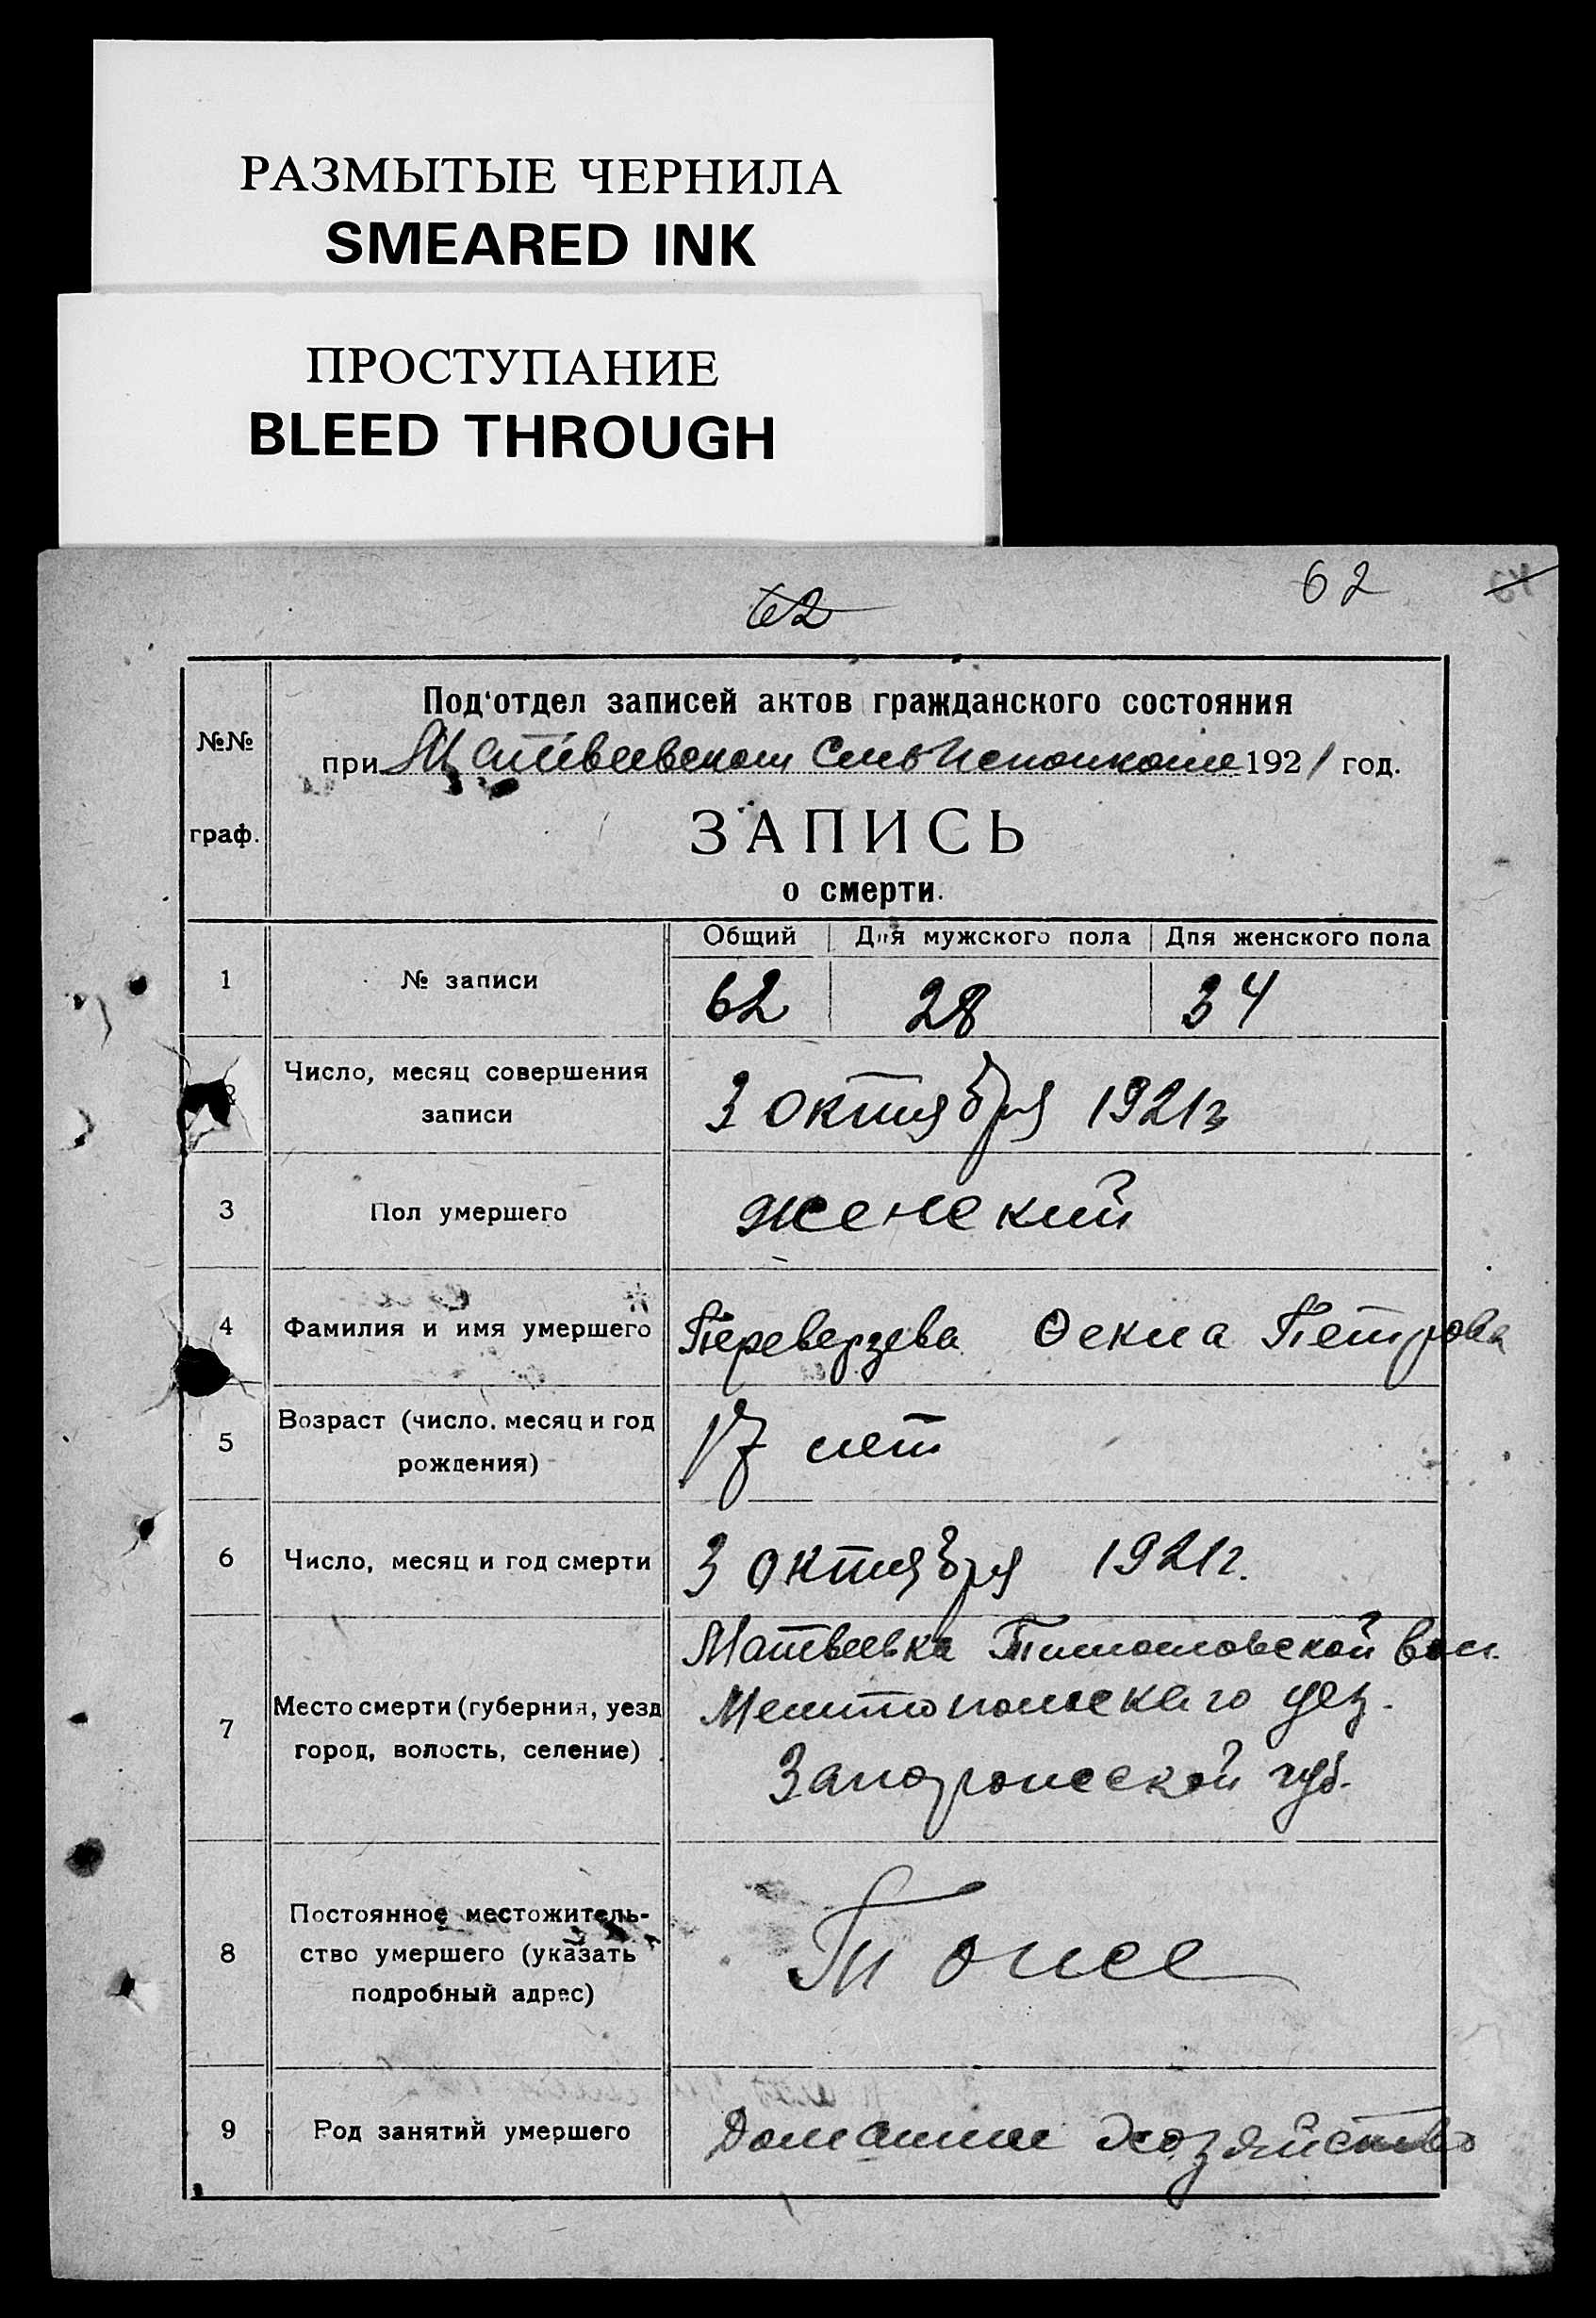 РАЗМЫТЫЕ ЧЕРНИЛА
SMEARED INK
ПРОСТУПАНИЕ
BLEED THROUGH
62
62
№№ граф.
Под‘отдел записей актов гражданского состояния
при Матвеевском Сельисполкоме 1921 год.
ЗАПИСЬ
о смерти.
Общий Для мужского пола Для женского пола
1 № записи 62 28 34
2 Число, месяц совершения
записи
3 октября 1921г
3 Пол умершего женский
4 Фамилия и имя умершего Переверзева Фекла Петрова
5 Возраст (число, месяц и год
рождения)
17 лет
6 Число, месяц и год смерти 3 октября 1921г.
7 Место смерти (губерния, уезд
город, волость, селение)
Матвеевка Тимошовской вол.
Мелитопольского уез.
Запорожской губ.
8 Постоянное местожитель-
ство умершего (указать
подробный адрес)
То же
9 Род занятий умершего Домашнее хозяйство